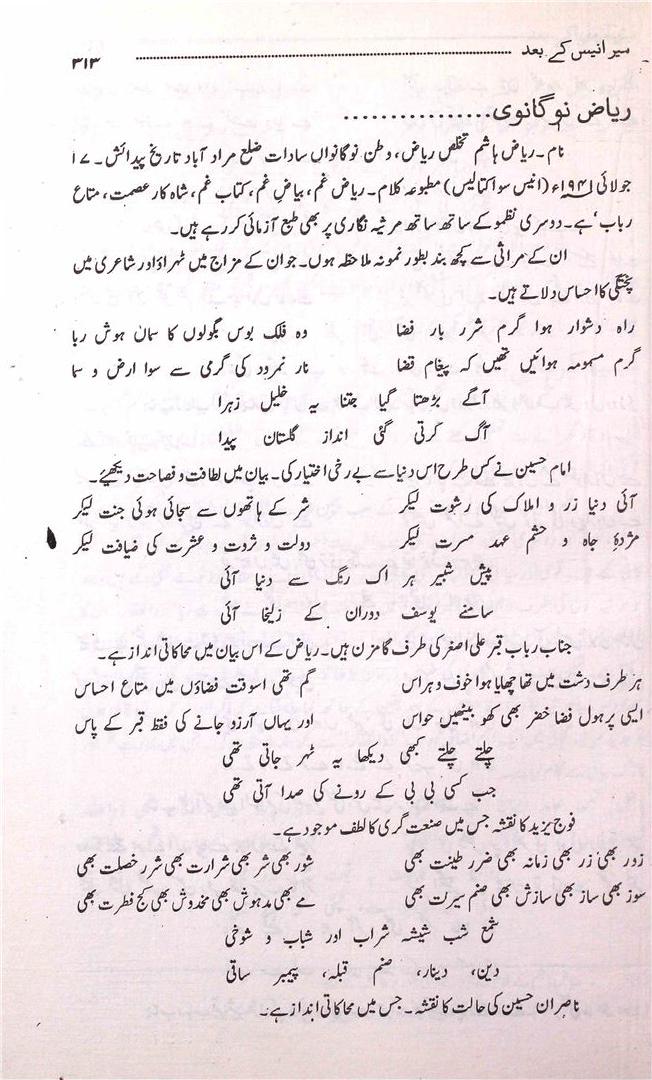 میر انیس کے بعد ........................ ۳۱۳
ریاض نوگانوی................
نام۔ ریاض ہاشم تخلص ریاض، وطن نوگانواں سادات ضلع مراد آباد تاریخ پیدائش۔ ۱۷
جولائی ۱۹۴۱ء (انیس سو اکتالیس) مطبوعہ کلام۔ ریاض غم، بیاض غم، کتاب غم، شاہ کار عصمت، متاع
رباب‘ ہے۔ دوسری نظمو کے ساتھ ساتھ مرثیہ نگاری پر بھی طبع آزمائی کر رہے ہیں۔
ان کے مراثی سے کچھ بند بطور نمونہ ملاحظہ ہوں۔ جو ان کے مزاج میں ٹھہراؤ اور شاعری میں
پختگی کا احساس دلاتے ہیں۔
راہ دشوار ہوا گرم شرر بار فضا وہ فلک بوس بگولوں کا سماں ہوش ربا
گرم مسمومہ ہوائیں تھیں کہ پیغام قضا نار نمرود کی گرمی سے سوا ارض و سما
آگے بڑھتا گیا جتنا یہ خلیل زہرا
آگ کرتی گئی انداز گلستاں پیدا
امام حسین نے کس طرح اس دنیا سے بے رخی اختیار کی۔ بیان میں لطافت و فصاحت دیکھئے۔
آئی دنیا زر و املاک کی رشوت لیکر شر کے ہاتھوں سے سجائی ہوئی جنت لیکر
مژدۂ جاہ و حشم عہد مسرت لیکر دولت و ثروت و عشرت کی ضیافت لیکر
پیش شبیر ہر اک رنگ سے دنیا آئی
سامنے یوسف دوراں کے زلیخا آئی
جناب رباب قبر علی اصغر کی طرف گامزن ہیں۔ ریاض کے اس بیان میں محاکاتی انداز ہے۔
ہر طرف دشت میں تھا چھایا ہوا خوف و ہراس گم تھی اسوقت فضاؤں میں متاع احساس
ایسی پر ہول فضا خضر بھی کھو بیٹھیں حواس اور یہاں آرزو جانے کی فقط قبر کے پاس
چلتے چلتے کبھی دیکھا یہ ٹھہر جاتی تھی
جب کسی بی بی کے رونے کی صدا آتی تھی
فوج یزید کا نقشہ جس میں صنعت گری کا لطف موجود ہے۔
زور بھی زر بھی زمانہ بھی ضرر طینت بھی شور بھی شر بھی شرارت بھی شرر خصلت بھی
سوز بھی ساز بھی سازش بھی صنم سیرت بھی مے بھی مدہوش بھی مخدوش بھی کج فطرت بھی
شمع شب شیشہ شراب اور شباب و شوخی
دین، دینار، صنم قبلہ، پیمبر ساقی
ناصران حسین کی حالت کا نقشہ۔ جس میں محاکاتی انداز ہے۔